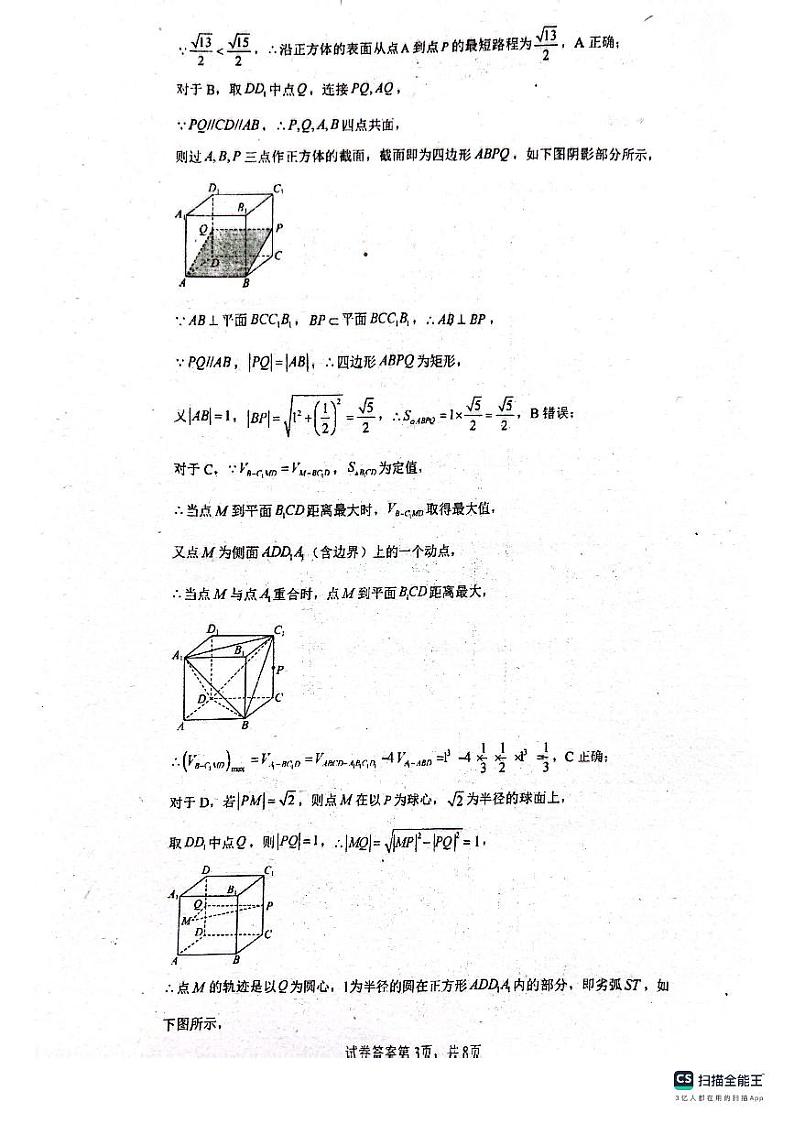 ∵ √13/2 < √15/2，∴沿正方体的表面从点A到点P的最短路程为 √13/2，A 正确；
对于 B，取 DD₁ 中点 Q，连接 PQ, AQ，
∵PQ//CD//AB，∴P,Q,A,B 四点共面，
则过 A,B,P 三点作正方体的截面，截面即为四边形 ABPQ，如下图阴影部分所示，
D₁ C₁
A₁ B₁
Q P
D C
A B
∵AB⊥平面 BCC₁B₁，BP⊂平面 BCC₁B₁，∴AB⊥BP，
∵PQ//AB，|PQ|=|AB|，∴四边形 ABPQ 为矩形，
又|AB|=1，|BP|=√(1²+(1/2)²)=√5/2，∴S▱ABPQ=1×√5/2=√5/2，B 错误；
对于 C，∵V_{B-C₁MD}=V_{M-BC₁D}，S_{△B₁CD}为定值，
∴当点 M 到平面 B₁CD 距离最大时，V_{B-C₁MD} 取得最大值，
又点 M 为侧面 ADD₁A₁（含边界）上的一个动点，
∴当点 M 与点 A₁ 重合时，点 M 到平面 B₁CD 距离最大，
D₁ C₁
A₁ B₁
P
D C
A B
∴(V_{B-C₁MD})_{max}=V_{A₁-BC₁D}=V_{ABCD-A₁B₁C₁D₁}-4V_{A₁-ABD}=1³-4×1/3×1/2×1³=1/3，C 正确；
对于 D，若|PM|=√2，则点 M 在以 P 为球心，√2 为半径的球面上，
取 DD₁ 中点 Q，则|PQ|=1，∴|MQ|=√(|MP|²-|PQ|²)=1，
D C₁
A₁ B₁
Q P
M
D C
A B
∴点 M 的轨迹是以 Q 为圆心，1为半径的圆在正方形 ADD₁A₁ 内的部分，即劣弧 ST，如
下图所示，
试卷答案第3页，共8页
CS 扫描全能王™
3亿人都在用的扫描App